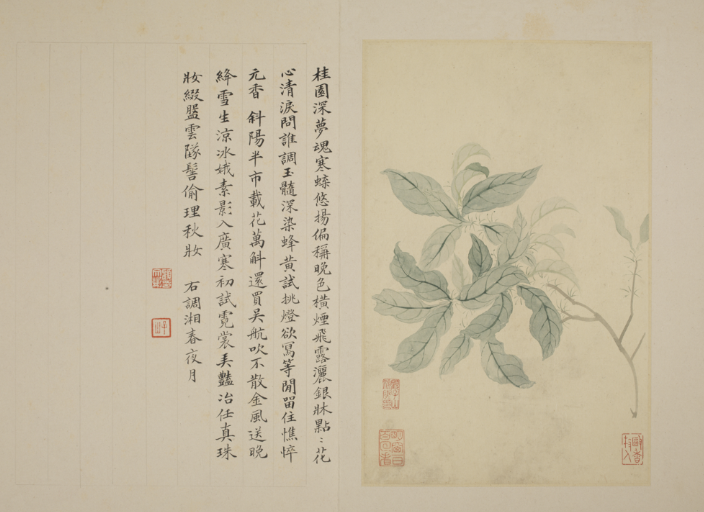 桂園深夢魂寒蟀悠揚偏稱晚色橫煙飛露灑銀牀點:花
心清淚問誰調玉髓深染蜂黃試挑燈欲寫等閒留住憔悴
元香 斜陽半市載花萬斛還買吳航吹不散金風送晚
絳雪生涼冰娥素影入廣寒初試霓裳美豔冶任真珠
妝綴盤雲隊髻偷理秋妝 右調湘春夜月